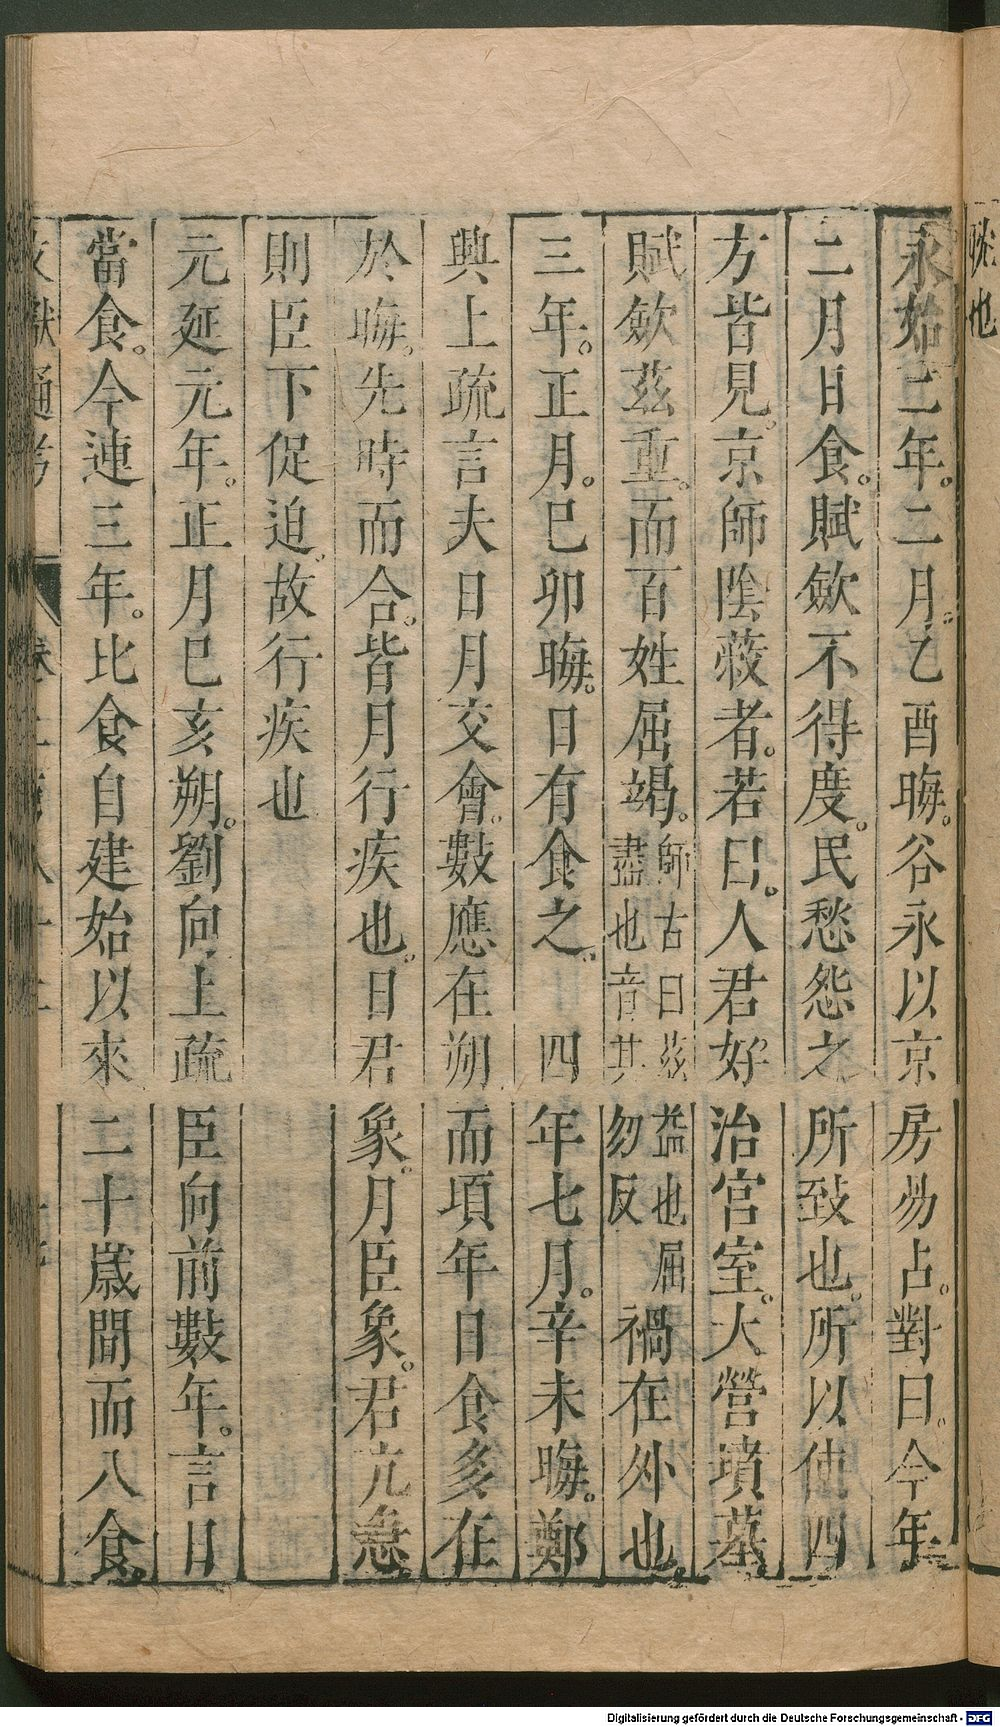 敥也
永始二年。二月。乙酉晦。谷永以京房易占。對曰。今年
二月日食。賦斂不得度。民愁怨之所致也。所以使四
方皆見。京師陰蔽者。若曰。人君好治宮室。大營墳墓。
賦斂茲重。而百姓屈竭。師古曰茲益也屈盡也音其勿反禍在外也。
三年。正月。巳卯晦。日有食之。　四年七月。辛未晦。鄭
興上疏言夫日月交會。數應在朔而頃年日食多在
於晦。先時而合。皆月行疾也。日君象。月臣象。君亢急
則臣下促迫。故行疾也
元延元年。正月巳亥朔。劉向上疏臣向前數年。言日
當食。今連三年。比食自建始以來二十歲間而八食。
文獻通考　卷二百八十二
Digitalisierung gefördert durch die Deutsche Forschungsgemeinschaft - DFG